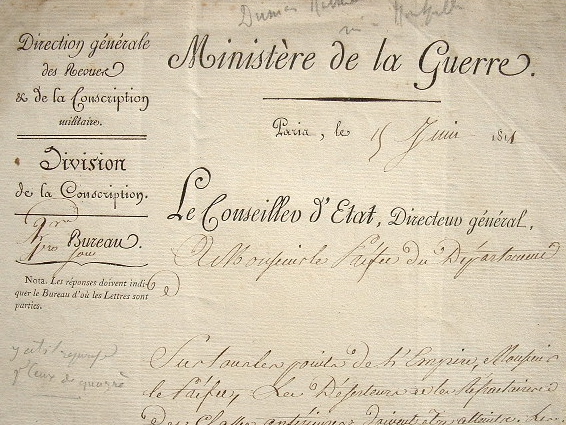 Direction générale
des Revues
& de la Conscription
militaire.
Division
de la Conscription.
Bureau.
Nota. Les réponses doivent indi-
quer le Bureau d'où les Lettres sont
parties.
Ministère de la Guerre.
Paris, le 15 Juin 1811
Le Conseiller d'Etat, Directeur général,
A Monsieur le Préfet du Département
d
Sur tous les points de l'Empire, Monsieur
le Préfet, Les Déserteurs et les Réfractaires
des Classes antérieures doivent être atteints. Les